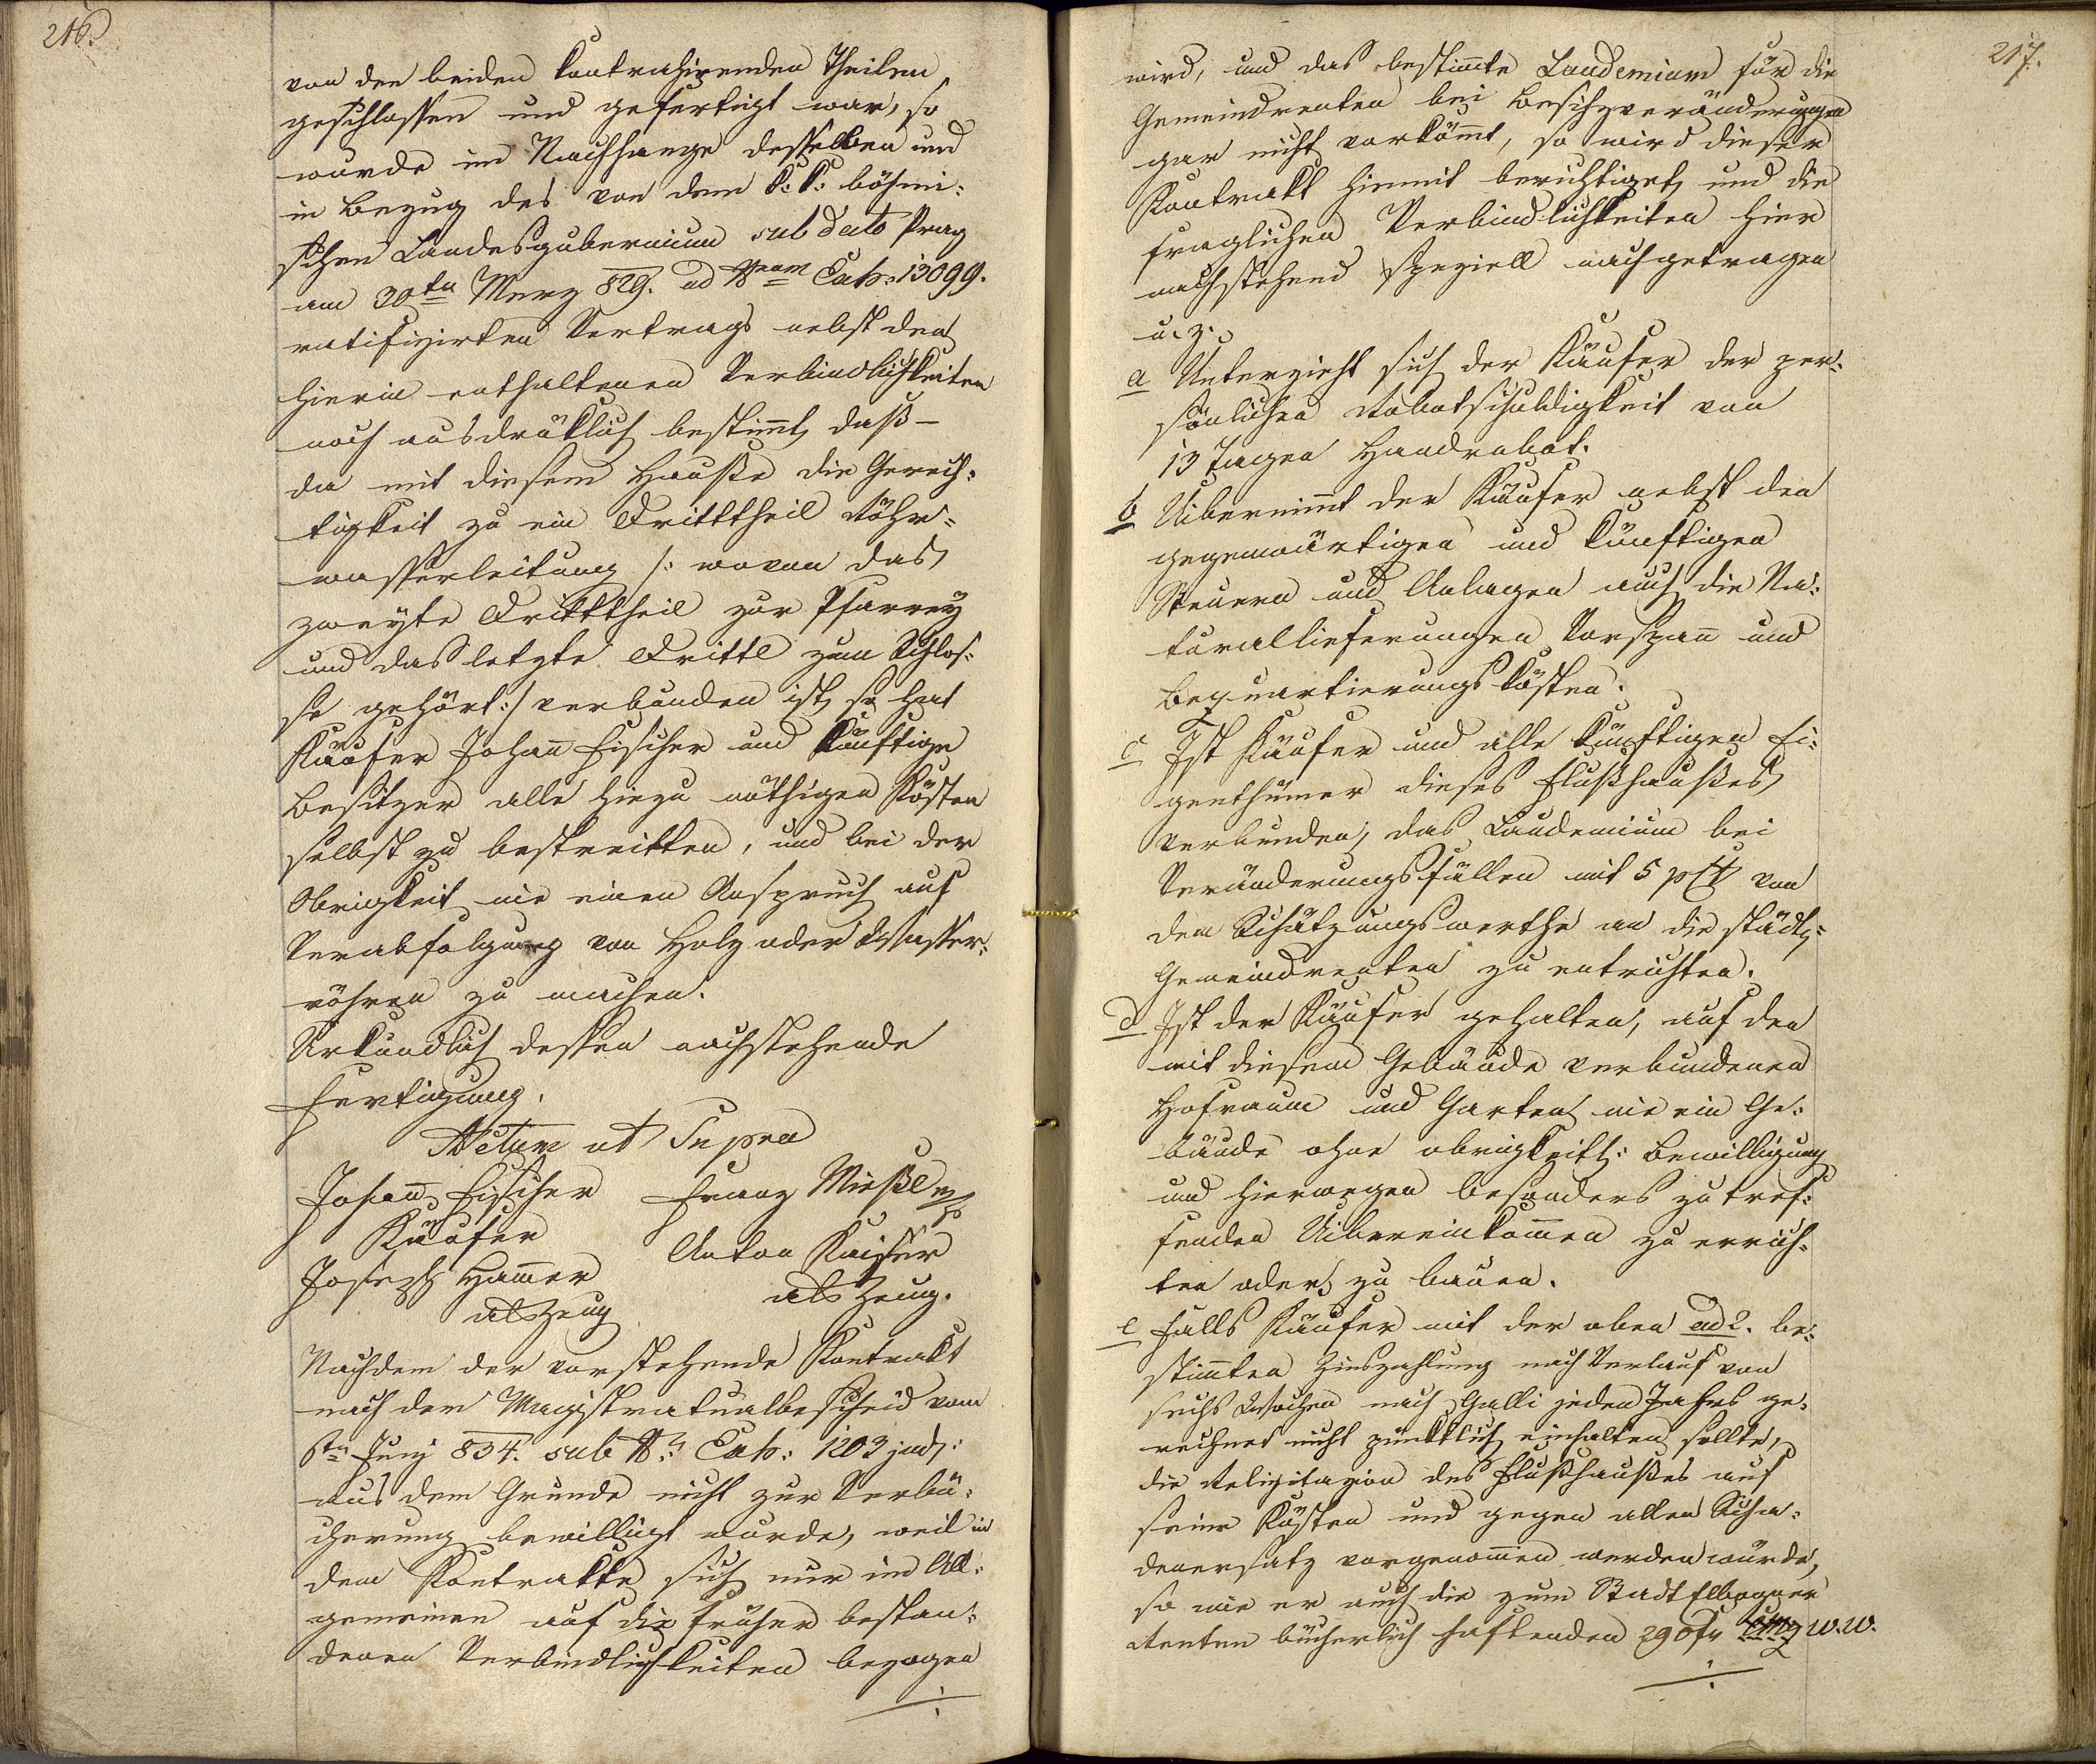 216.
von den beiden kontrahirenden Theilen
geschlossen und gefertigt war, so
wurde im Nachhange desselben und
in Bezug des von dem k: k: böhmi-
schen Landesgubernium sub dato Prag
am 20ten Merz 829. ad Nrum Exh: 13099.
ratifizirten Vertrags nebst den
hierin enthaltenen Verbindlichkeiten
noch ausdrüklich bestimt, daß –
da mit diesem Hauße die Gerech-
tigkeit zu ein Dritttheil Röhr-
wasserleitung /: wovon das
zweyte Dritttheil zur Pfarrey
und das letzte Drittl zum Schlos-
se gehört :/ verbunden ist, so hat
Käufer Johann Fischer und künftige
Besitzer alle hiezu nöthigen Kösten
selbst zu bestreitten, und bei der
Obrigkeit nie einen Anspruch auf
Verabfolgung von Holz oder Wasser-
röhren zu machen.
Urkundlich dessen nachstehende
Fertigung.
Actum ut Supra
Johann Fischer Franz Mießl
Käufer
Joseph Hammer Anton Kaiser
als Zeug als Zeug.
Nachdem der vorstehende Kontrakt
nach dem Magistratualbescheid vom
Juny 834. sub N: Exh: 1203 jud:
aus dem Grunde nicht zur Verbü-
cherung bewilligt wurde, weil in
dem Kontrakte sich nur im All-
gemeinen auf die früher bestan-
denen Verbindlichkeiten bezogen
217.
wird, und das bestimte Laudemium für die
Gemeindrenten bei Besitzveränderungen
gar nicht vorkömmt, so wird dieser
Kontrakt hiemit berichtiget, und die
fraglichen Verbindlichkeiten hier
nachstehend speziell nachgetragen
u. z.
a Unterzieht sich der Käufer der per-
sönlichen Robotschuldigkeit von
13 Tagen Handrobot.
b Uibernimmt der Käufer nebst den
gegenwärtigen und künftigen
Steuern und Anlagen auch die Na-
turallieferungen, Vorspann und
Bequartierungs kösten.
c Ist Käufer und alle künftigen Ei-
genthümer dieses Flußhaußes
verbunden, das Laudemium bei
Veränderungsfällen mit 5 pCt von
dem Schätzungswerthe an die städt:
Gemeindrenten zu entrichten.
d Ist der Käufer gehalten, auf den
mit diesem Gebäude verbundenen
Hofraum und Garten nie ein Ge-
bäude ohne obrigkeitl: Bewilligung
und hierwegen besonders zu tref-
fenden Uibereinkommen zu errich-
ten oder zu bauen.
e Falls Käufer mit der oben ad 2. be-
stimten Zinszahlung nach Verlauf von
sechs Wochen nach Galli jeden Jahrs ge-
rechnet nicht pünktlich einhalten sollte,
die Relizitazion des Flußhaußes auf
seine Kösten und gegen allen Scha-
denersatz vorgenommen werden würde,
so wie er auch die zum Stadt Elbogner
Renten bücherlich haftenden 290 fr W.W.